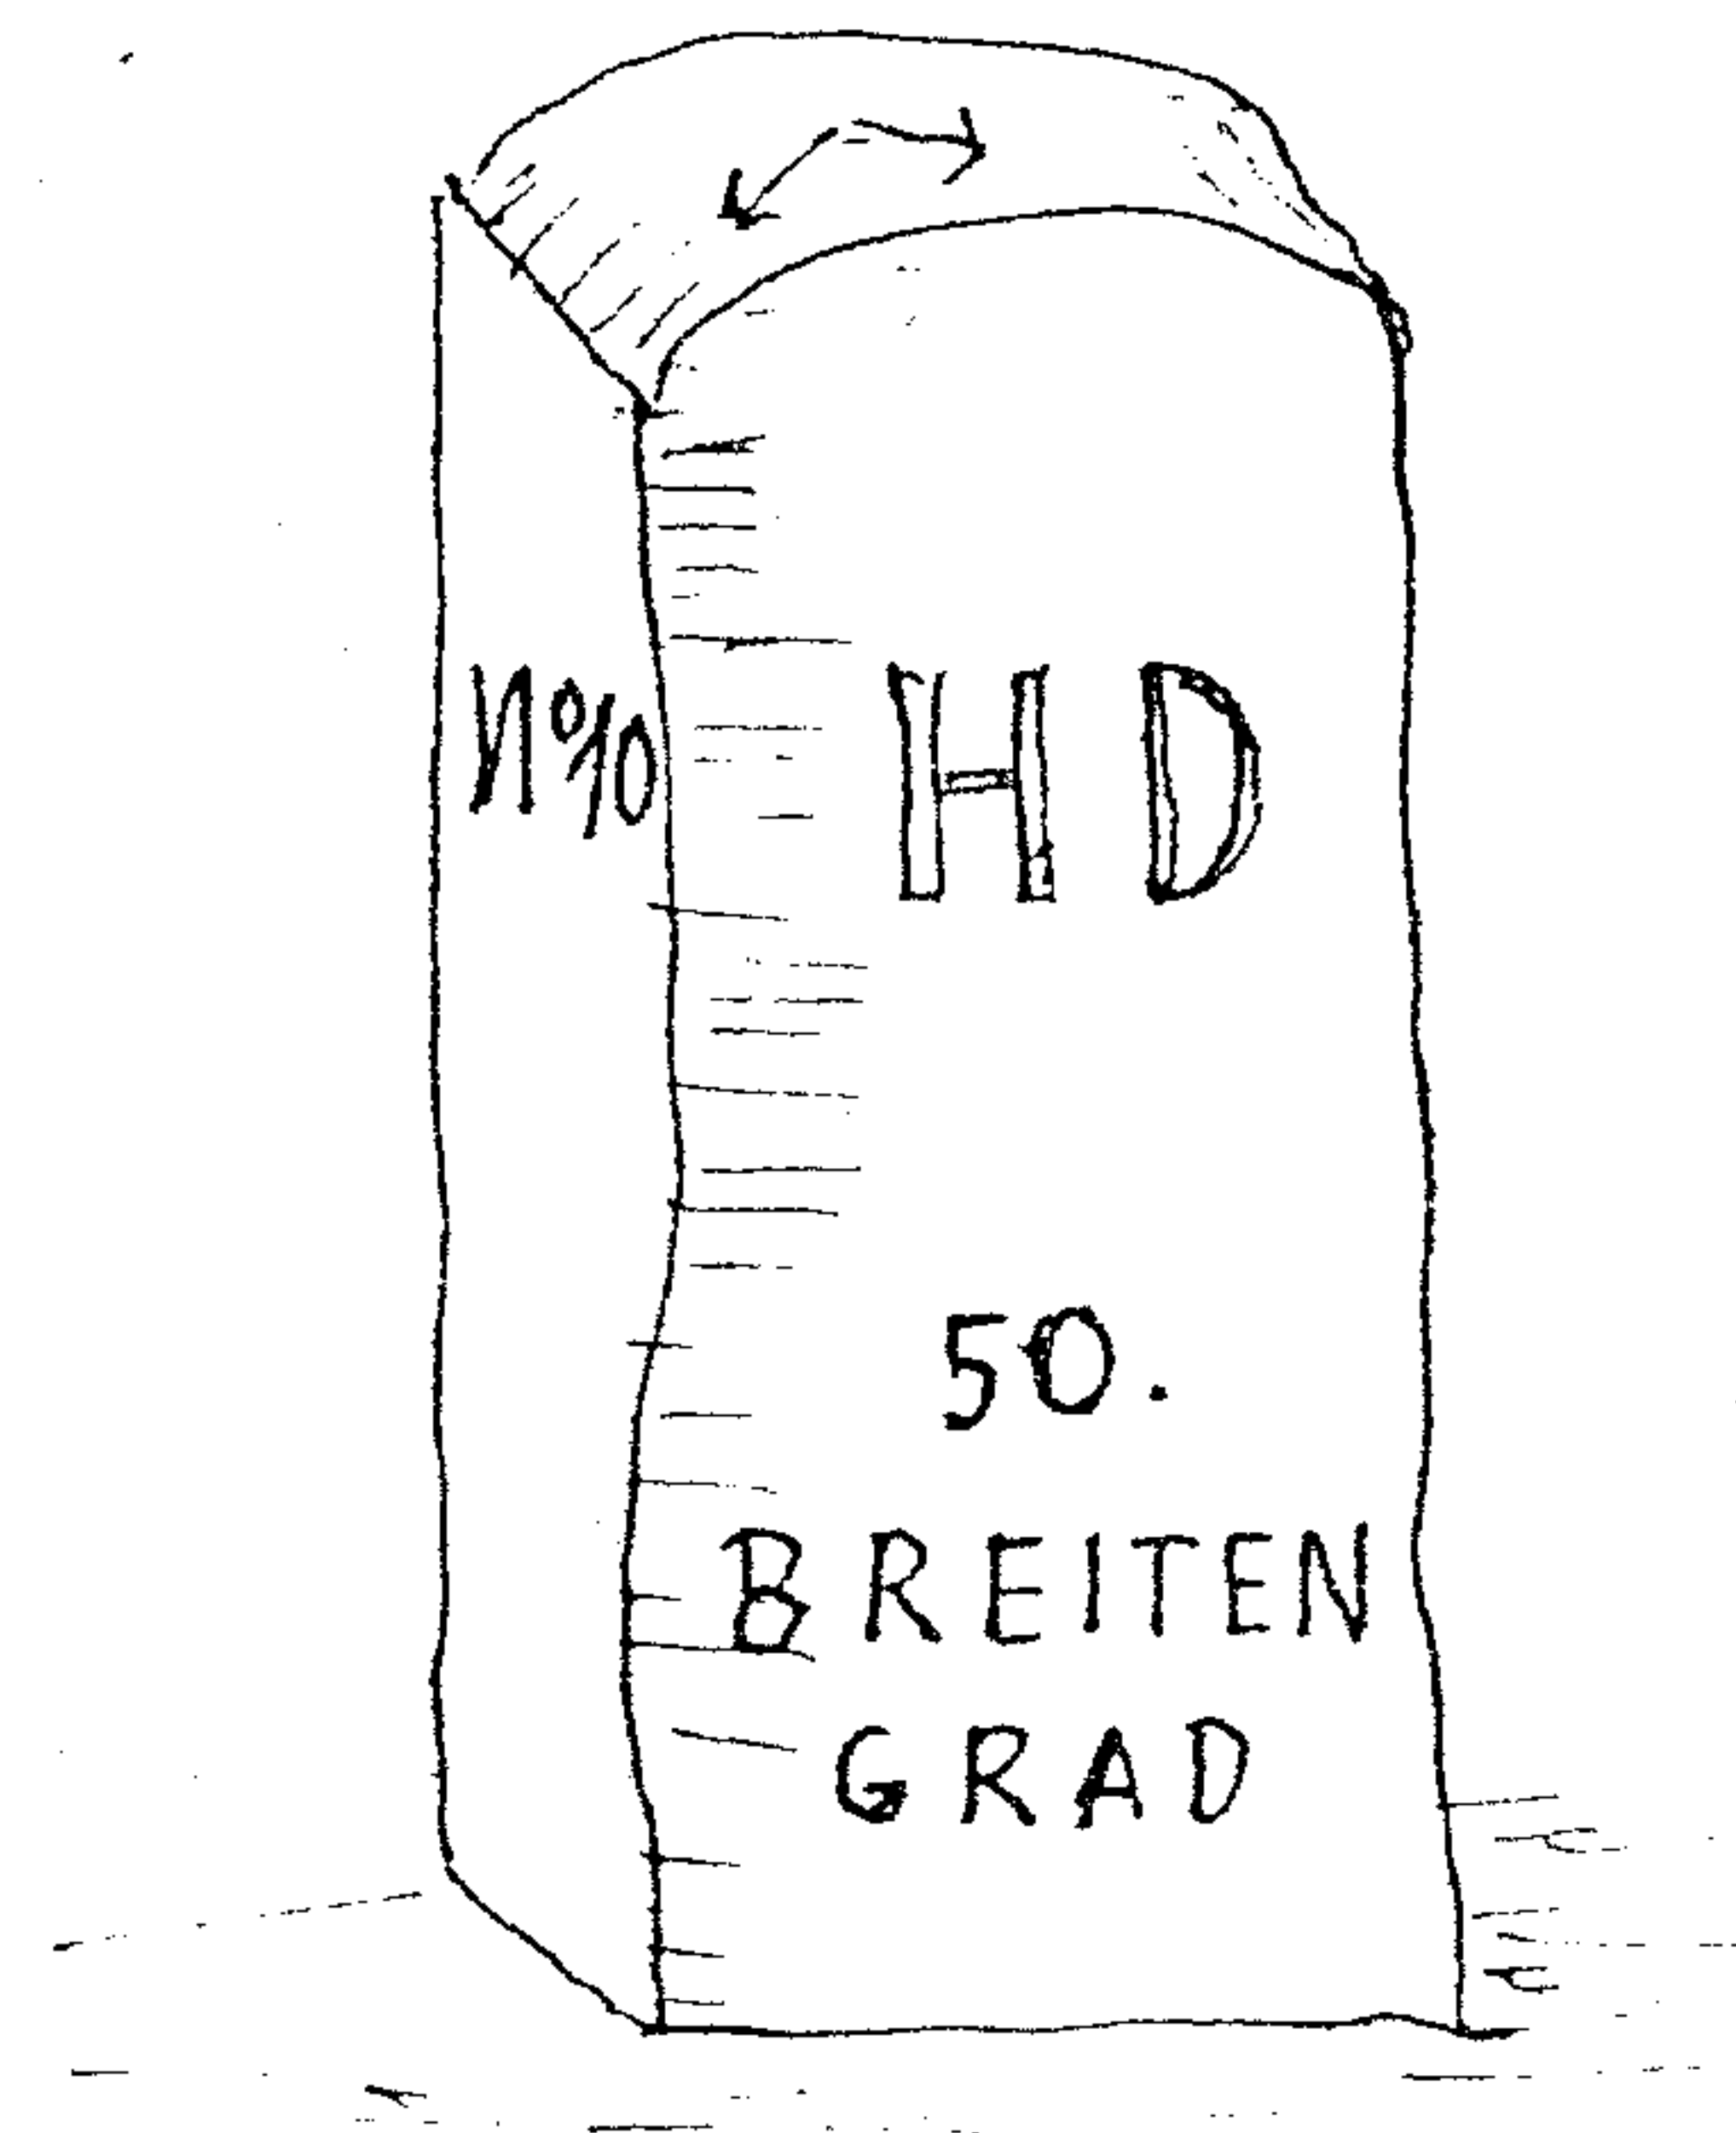 N° 10
HD
50.
BREITEN
GRAD